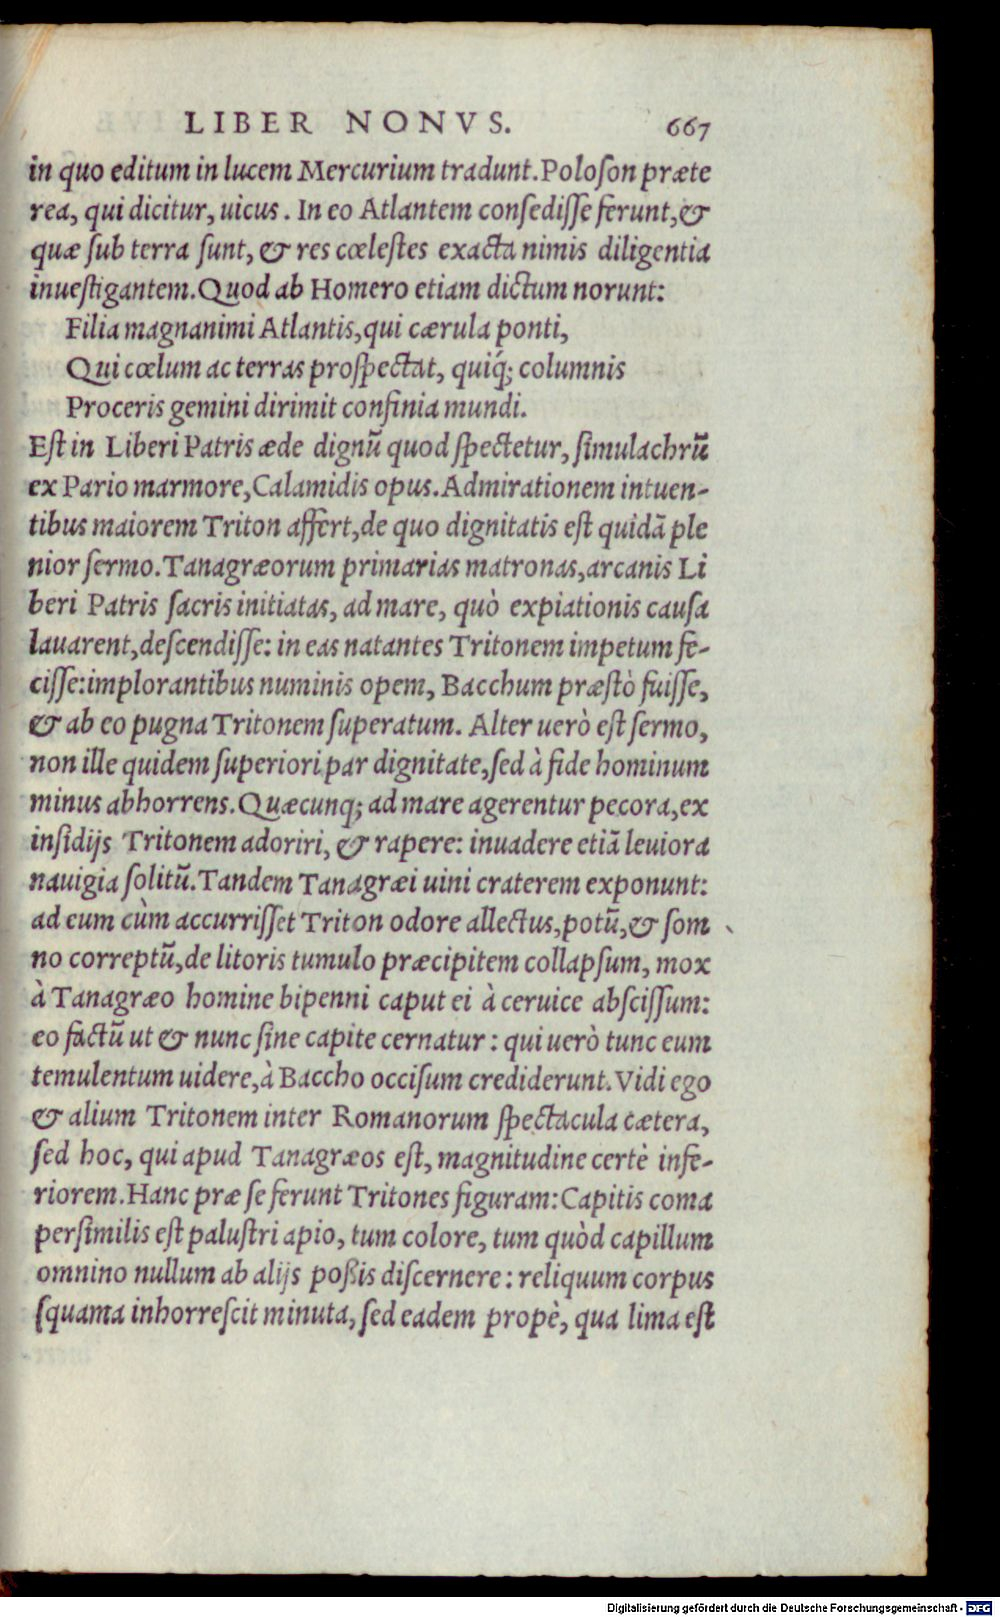 LIBER NONVS. 667
in quo editum in lucem Mercurium tradunt. Poloſon præte
rea, qui dicitur, uicus. In eo Atlantem conſediſſe ferunt, &
quæ ſub terra ſunt, & res cœleſtes exacta nimis diligentia
inueſtigantem. Quod ab Homero etiam dictum norunt:
Filia magnanimi Atlantis, qui cærula ponti,
Qui cœlum ac terras proſpectat, quiq́; columnis
Proceris gemini dirimit confinia mundi.
Eſt in Liberi Patris æde dignũ quod ſpectetur, ſimulachrũ
ex Pario marmore, Calamidis opus. Admirationem intuen-
tibus maiorem Triton affert, de quo dignitatis eſt quidã ple
nior ſermo. Tanagræorum primarias matronas, arcanis Li
beri Patris ſacris initiatas, ad mare, quò expiationis cauſa
lauarent, deſcendiſſe: in eas natantes Tritonem impetum fe-
ciſſe: implorantibus numinis opem, Bacchum præſtò fuiſſe,
& ab eo pugna Tritonem ſuperatum. Alter uerò eſt ſermo,
non ille quidem ſuperiori par dignitate, ſed à fide hominum
minus abhorrens. Quæcunq; ad mare agerentur pecora, ex
inſidijs Tritonem adoriri, & rapere: inuadere etiã leuiora
nauigia ſolitũ. Tandem Tanagræi uini craterem exponunt:
ad eum cùm accurriſſet Triton odore allectus, potũ, & ſom
no correptũ, de litoris tumulo præcipitem collapſum, mox
à Tanagræo homine bipenni caput ei à ceruice abſciſſum:
eo factũ ut & nunc ſine capite cernatur: qui uerò tunc eum
temulentum uidere, à Baccho occiſum crediderunt. Vidi ego
& alium Tritonem inter Romanorum ſpectacula cætera,
ſed hoc, qui apud Tanagræos eſt, magnitudine certè infe-
riorem. Hanc præ ſe ferunt Tritones figuram: Capitis coma
perſimilis eſt paluſtri apio, tum colore, tum quòd capillum
omnino nullum ab alijs poßis diſcernere: reliquum corpus
ſquama inhorreſcit minuta, ſed eadem propè, qua lima eſt
Digitalisierung gefördert durch die Deutsche Forschungsgemeinschaft - DFG